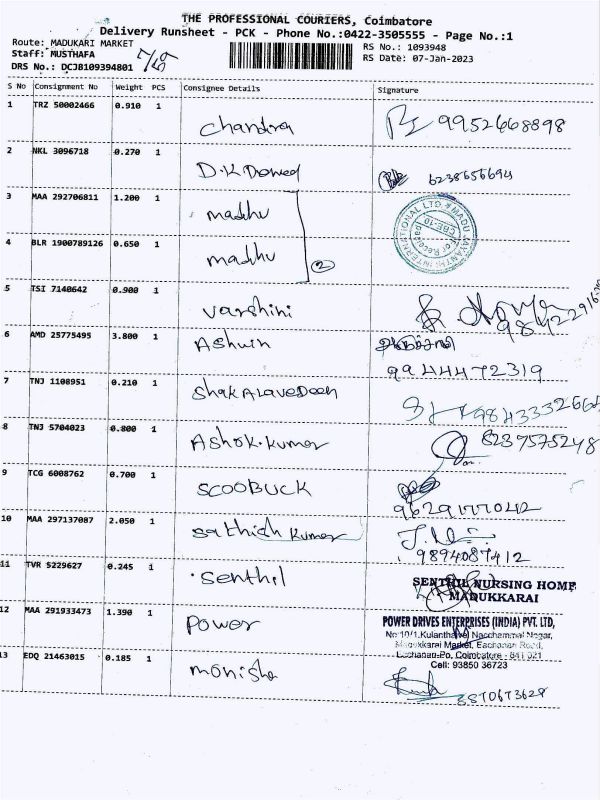 THE PROFESSIONAL COURIERS, Coimbatore
Delivery Runsheet - PCK - Phone No.:0422-3505555 - Page No.:1
Route: MADUKARI MARKET
Staff: MUSTHAFA
DRS No.: DCJB109394801
RS No.: 1093948
RS Date: 07-Jan-2023
S No Consignment No Weight PCS Consignee Details Signature
1 TRZ 50002466 0.910 1 Chandra 9952668898
2 NKL 3096718 0.270 1 D.K Dowed 6238656694
3 MAA 292706811 1.200 1 madhu
4 BLR 1900789126 0.650 1 madhu 2
MADU JAYANTHI INTERNATIONAL LTD.
CBE-10
5 TSI 7140642 0.900 1 Varshini
6 AMD 25775495 3.800 1 Ashwin
9944472319
7 TNJ 1108951 0.210 1 ShakALaveDeen
8 TNJ 5704023 0.800 1 Ashok.kumar 8237575248
9 TCG 6008762 0.700 1 SCOOBUCK
9629177042
10 MAA 297137087 2.050 1 Sathish kumar
9894087412
11 TVR 5229627 0.245 1 Senthil
SENTHIL NURSING HOME
MADUKKARAI
12 MAA 291933473 1.390 1 Power
POWER DRIVES ENTERPRISES (INDIA) PVT. LTD,
No:10/1, Nacchammal Nagar,
Madukkarai Market, Eachanari Road,
Eachanari-Po, Coimbatore - 641 021
Cell: 93850 36723
13 EDQ 21463015 0.185 1 monisha